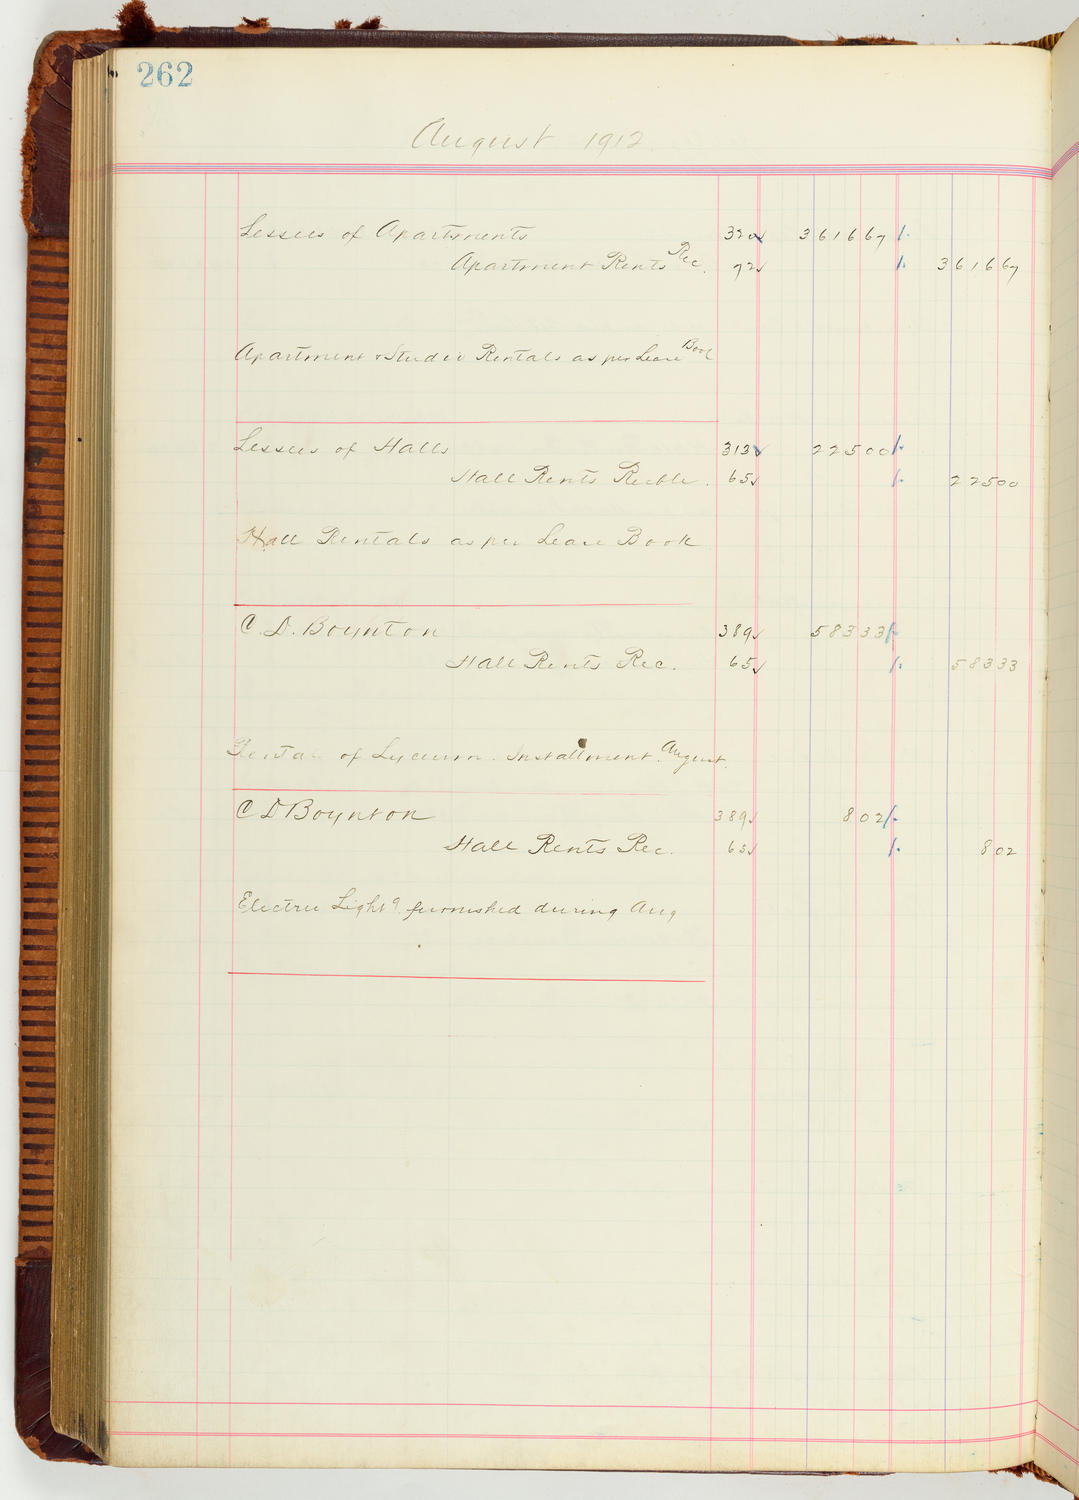 262
August 1912
Lessees of Apartments 320 361667
Apartment Rents Rec. 72 361667
Apartment & Studio Rentals as per Lease Book
Lessees of Halls 313 22500
Hall Rents Recble. 65 22500
Hall Rentals as per Lease Book
C. D. Boynton 389 58333
Hall Rents Rec. 65 58333
Rental of Lyceum. Installment. August.
C D Boynton 389 802
Hall Rents Rec. 65 802
Electric Light g. furnished during Aug